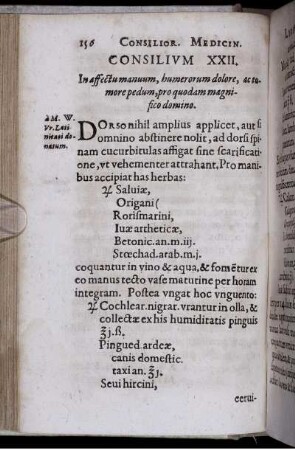 156 CONSILIOR. MEDICIN.
CONSILIVM XXII.
In affectu manuum, humerorum dolore, ac tu-
more pedum, pro quodam magni-
fico domino.
à M. W.
Vr. Lati-
nitati do-
natum.
DOrso nihil amplius applicet, aut si
omnino abstinere nolit, ad dorsi spi-
nam cucurbitulas affigat sine scarificatio-
ne, vt vehementer attrahant. Pro mani-
bus accipiat has herbas:
♃ Saluiæ,
Origani (
Rorismarini,
Iuæ artheticæ,
Betonic. an. m. iij.
Stœchad. arab. m. j.
coquantur in vino & aqua, & fomẽtur ex
eo manus tecto vase maturine per horam
integram. Postea vngat hoc vnguento:
♃ Cochlear. nigrat. vrantur in olla, &
collectæ ex his humiditatis pinguis
℥j. ß.
Pingued. ardeæ,
canis domestic.
taxi an. ℥j.
Seui hircini,